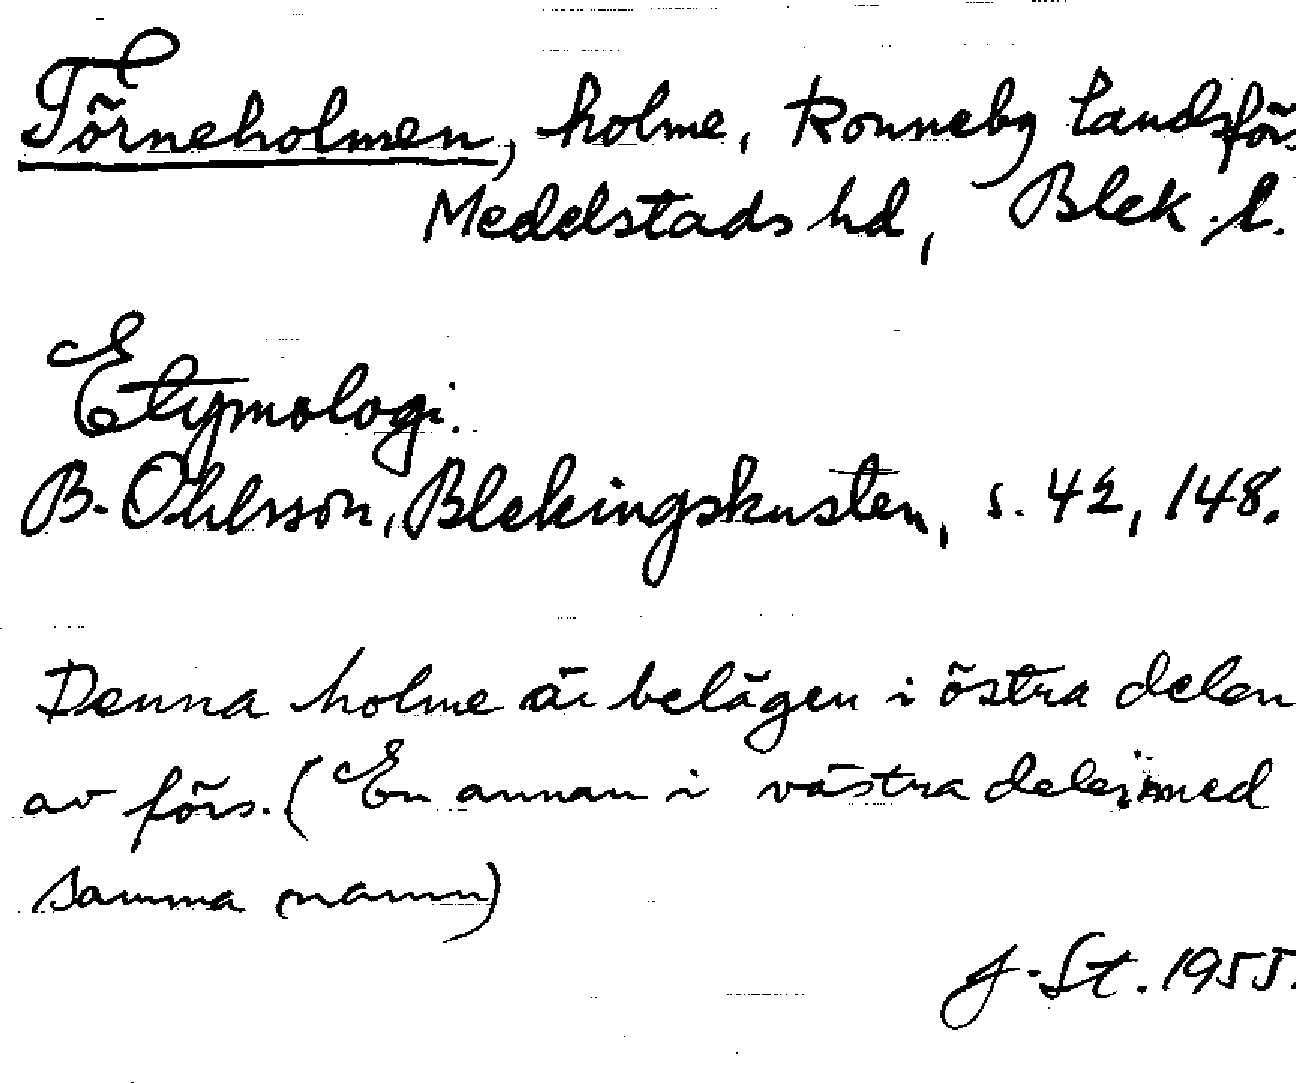 Törneholmen, holme, Ronneby landsförs.
Medelstads hd, Blek. l.
Etymologi.
B. Ohlsson, Blekingskusten, s. 42, 148.
Denna holme är belägen i östra delen
av förs. (En annan i västra delen med
samma namn)
J. St. 1955.